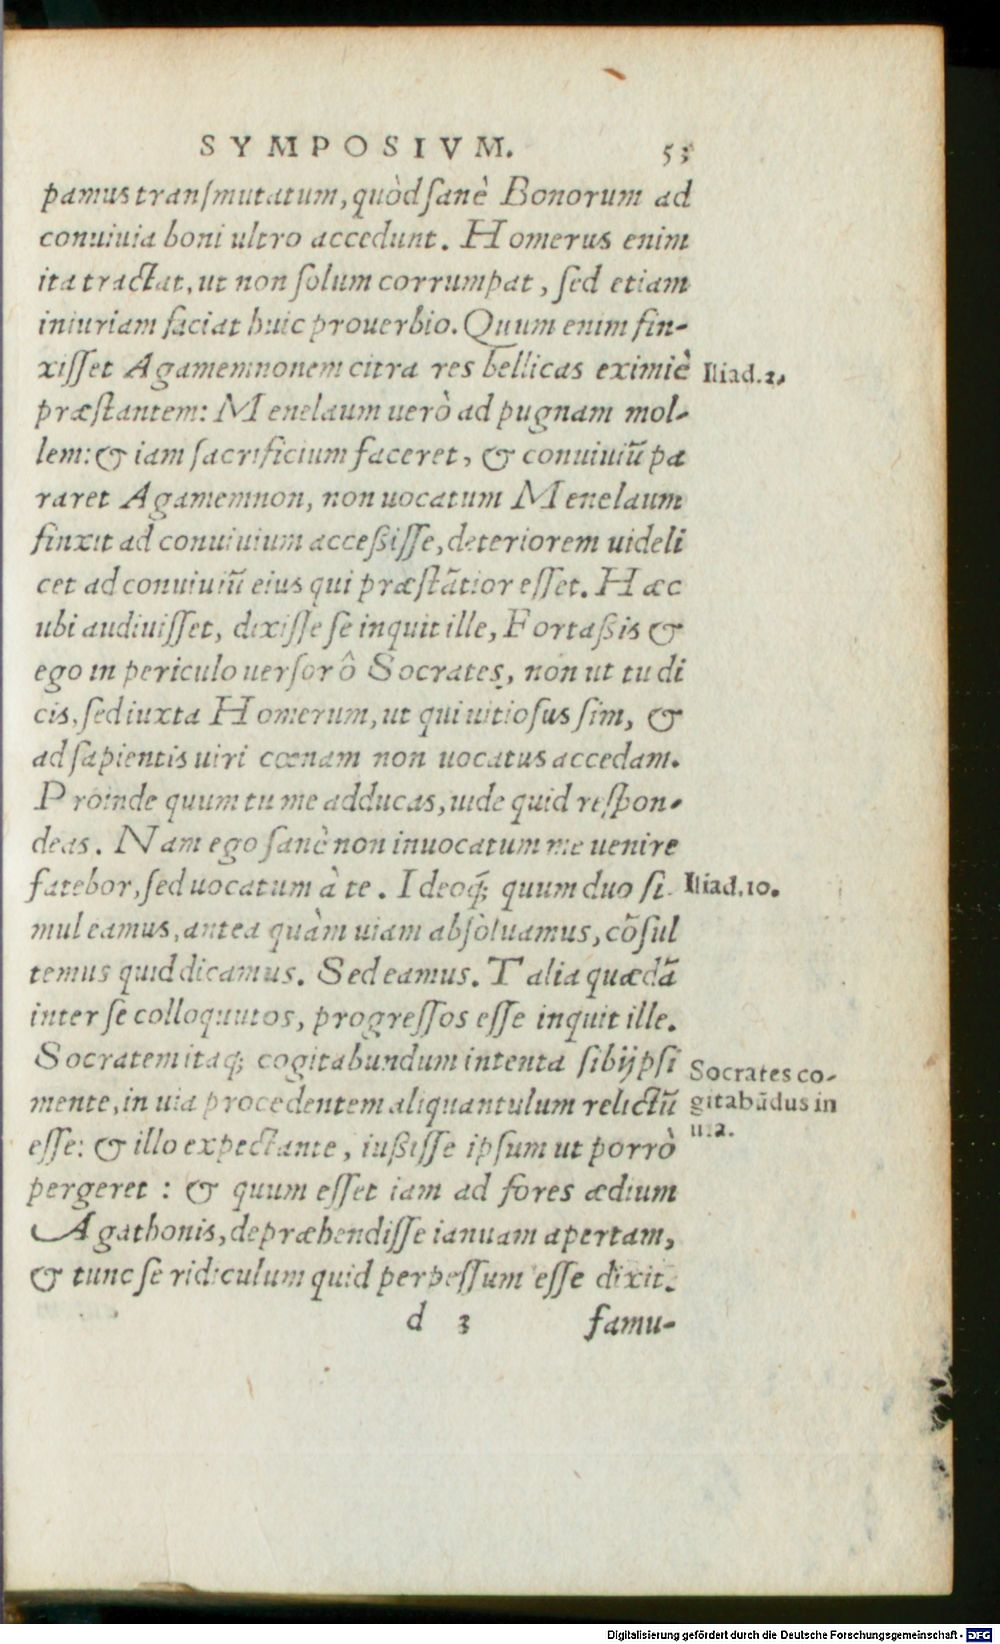 SYMPOSIVM. 53
pamus transmutatum, quòd sanè Bonorum ad
conuiuia boni ultro accedunt. Homerus enim
ita tractat, ut non solum corrumpat, sed etiam
iniuriam faciat huic prouerbio. Quum enim fin-
xisset Agamemnonem citra res bellicas eximiè
Iliad.2.
præstantem: Menelaum uerò ad pugnam mol-
lem: & iam sacrificium faceret, & conuiuiũ pa
raret Agamemnon, non uocatum Menelaum
finxit ad conuiuium acceßisse, deteriorem uideli
cet ad conuiuiũ eius qui præstãtior esset. Hæc
ubi audiuisset, dixisse se inquit ille, Fortaßis &
ego in periculo uersor ô Socrates, non ut tu di
cis, sed iuxta Homerum, ut qui uitiosus sim, &
ad sapientis uiri cœnam non uocatus accedam.
Proinde quum tu me adducas, uide quid respon-
deas. Nam ego sanè non inuocatum me uenire
fatebor, sed uocatum à te. Ideoq́; quum duo si
Iliad.10.
mul eamus, antea quàm uiam absòluamus, cõsul
temus quid dicamus. Sed eamus. Talia quædã
inter se colloquutos, progressos esse inquit ille.
Socratem itaq; cogitabundum intenta sibijpsi
Socrates co-
mente, in uia procedentem aliquantulum relictũ
gitabũdus in
esse: & illo expectante, iußisse ipsum ut porrò
uia.
pergeret : & quum esset iam ad fores ædium
Agathonis, depræhendisse ianuam apertam,
& tunc se ridiculum quid perpessum esse dixit.
d 3 famu-
Digitalisierung gefördert durch die Deutsche Forschungsgemeinschaft - DFG